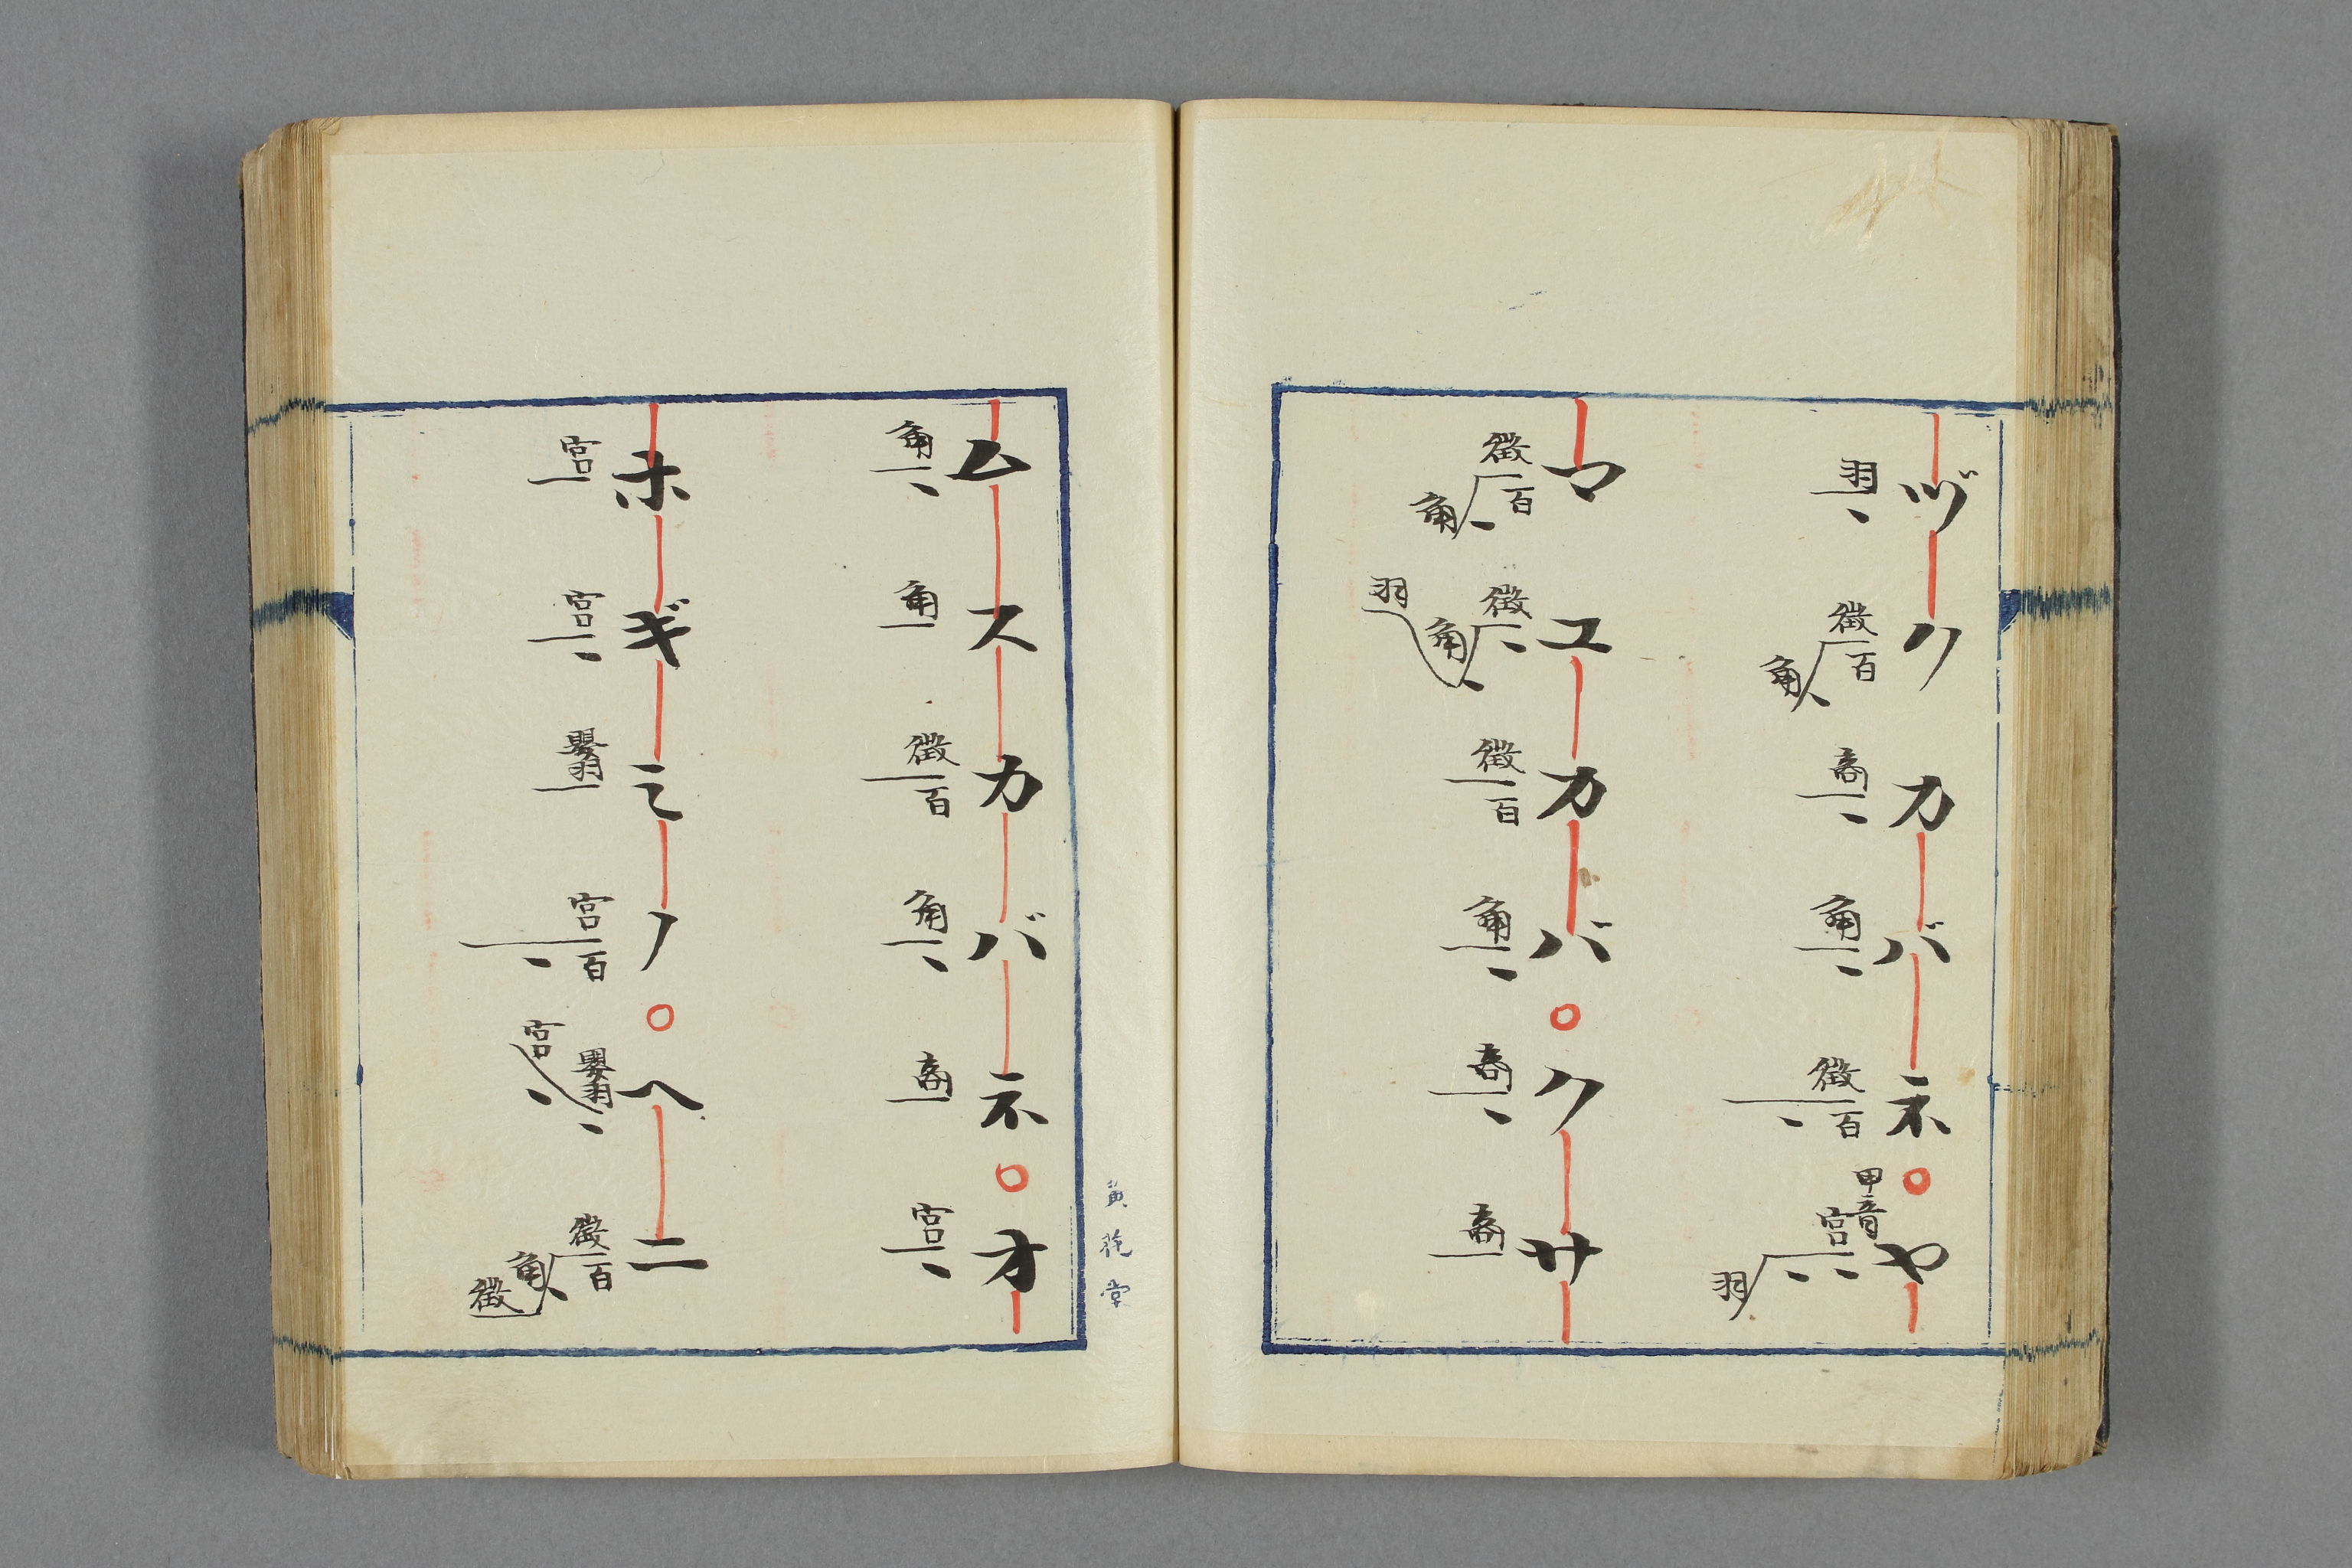 ヅクカバネ○ヤ
羽 徴百角 商 角 徴百 甲音宮羽
マユカバ○クサ
徴百角 徴角羽 徴百 角 商 商
黄 堂
ムスカバネ○オ
角 角 徴百 角 商 宮
ホギミノ○ヘニ
宮 宮 嬰羽 宮百 嬰羽宮 徴百角徴